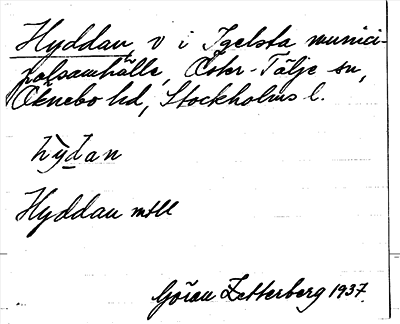 Hyddan, v i Igelsta munici-
palsamhälle, Östr-Tälje sn,
Öknebo hd, Stockholms l.
hỳdan
Hyddan mtll
Göran Zetterberg 1937.